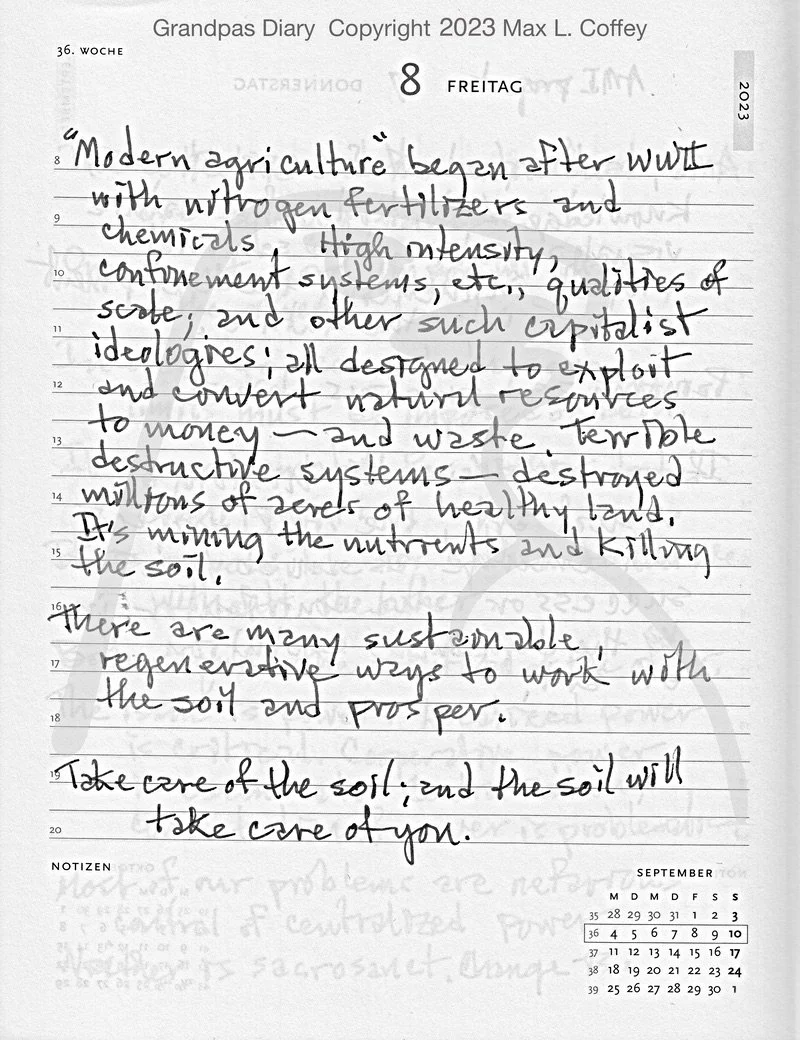 Grandpas Diary Copyright 2023 Max L. Coffey
36. WOCHE
8 FREITAG
2023
8 "Modern agriculture" began after WWII
with nitrogen fertilizers and
9 chemicals. High intensity,
10 confinement systems, etc., qualities of
scale; and other such capitalist
11 ideologies; all designed to exploit
12 and convert natural resources
to money — and waste. Terrible
13 destructive systems — destroyed
14 millions of acres of healthy land.
It's mining the nutrients and killing
15 the soil.
16 There are many sustainable,
17 regenerative ways to work with
the soil and prosper.
18
19 Take care of the soil; and the soil will
20 take care of you.
NOTIZEN
SEPTEMBER
M D M D F S S
35 28 29 30 31 1 2 3
36 4 5 6 7 8 9 10
37 11 12 13 14 15 16 17
38 18 19 20 21 22 23 24
39 25 26 27 28 29 30 1
Most of our problems are nefarious
control of centralized power
is sacrosanct. Change